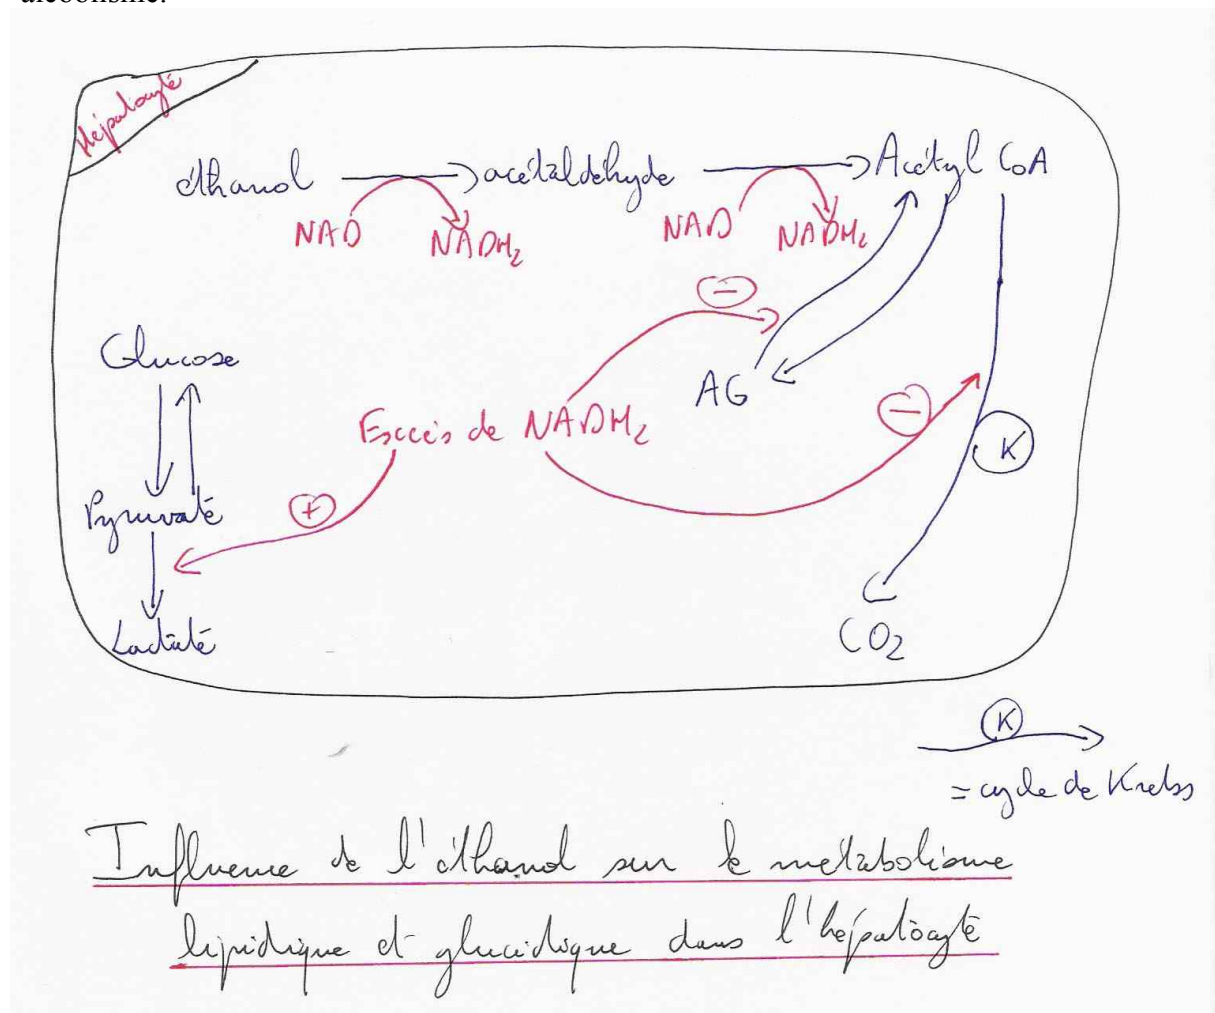 alcoolisme.
Hépatocyte
éthanol → acétaldéhyde → Acétyl CoA
NAD NADH₂ NAD NADH₂
−
Glucose
AG
−
Excès de NADH₂
K
Pyruvate
+
Lactate
CO₂
K
= cycle de Krebs
Influence de l'éthanol sur le métabolisme
lipidique et glucidique dans l'hépatocyte